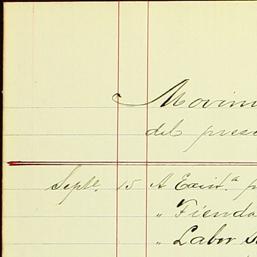 Movim
del pres
Septe. 15 A Exist.a p
" Tienda
" Labor S